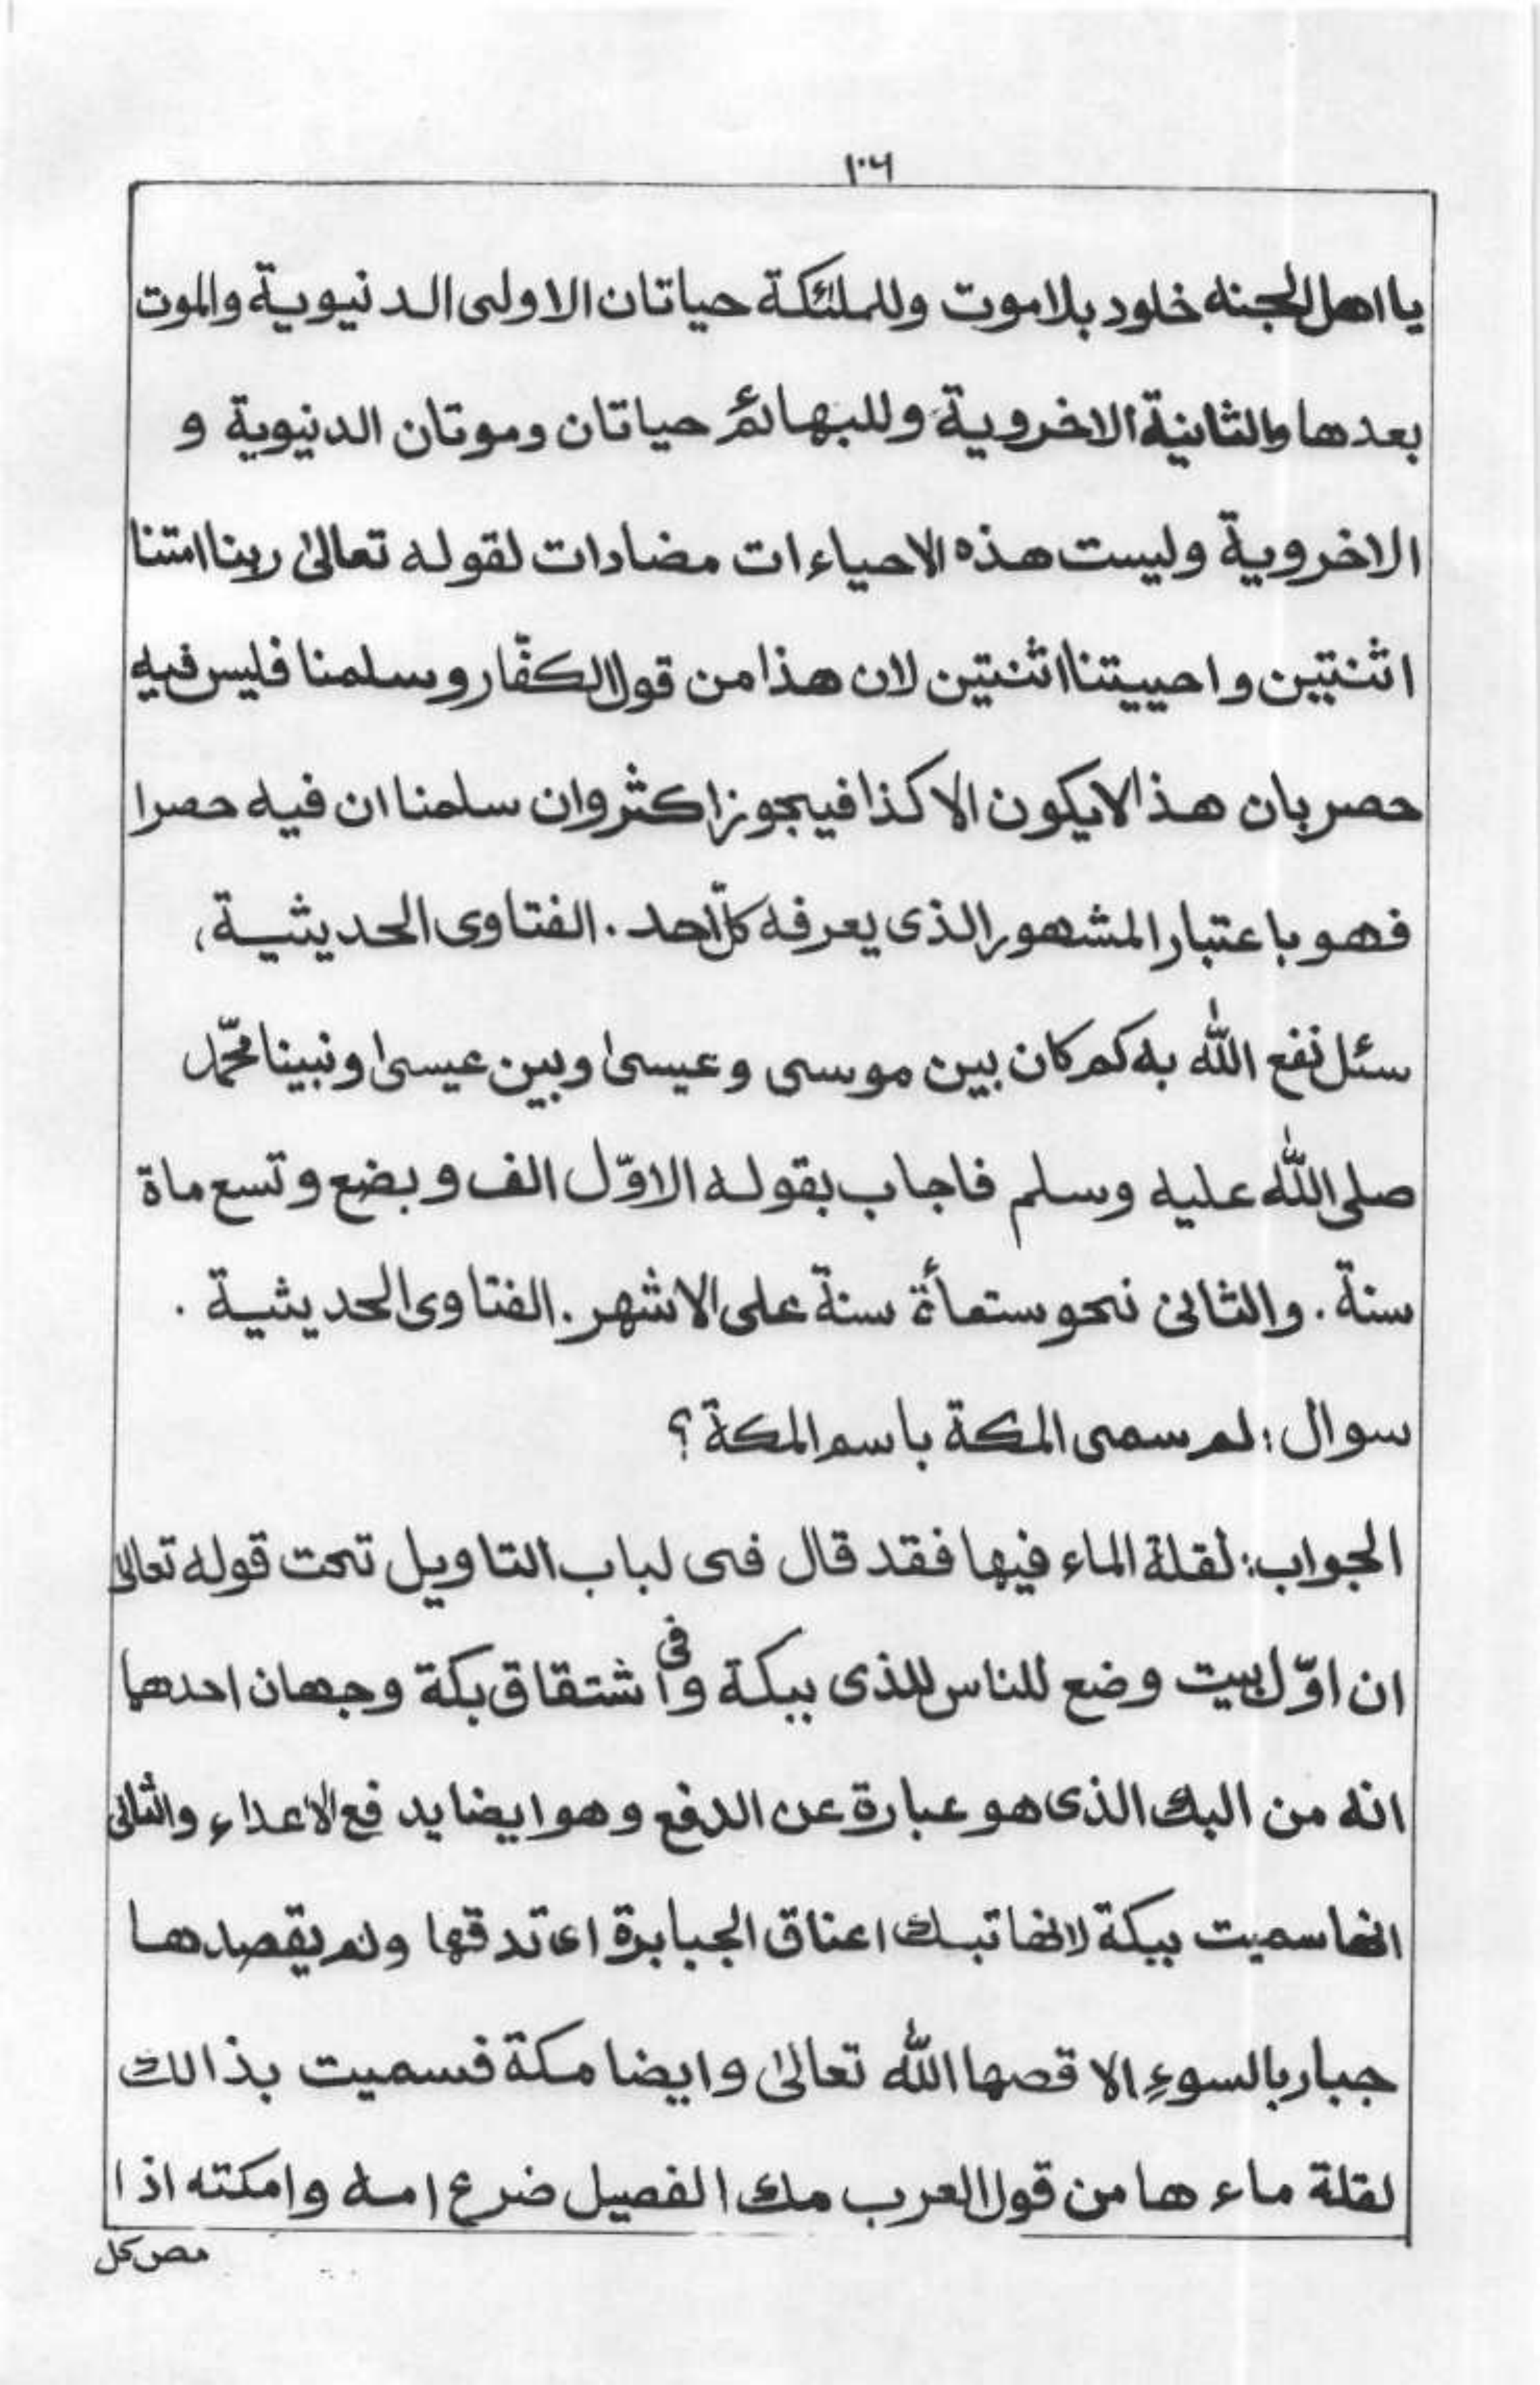 ١٠٦
يا اهل الجنه خلود بلا موت وللملئكة حياتان الاولى الدنيوية والموت
بعدها والثانية الاخروية وللبهائم حياتان وموتان الدنيوية و
الاخروية وليست هذه الاحياءات مضادات لقوله تعالىٰ ربنا امتنا
اثنتين واحييتنا اثنتين لان هذا من قول الكفّار وسلمنا فليس فيه
حصر بان هذا لايكون الا كذا فيجوز اكثر وان سلمنا ان فيه حصرا
فهو باعتبار المشهور الذى يعرفه كلّ احد . الفتاوى الحديثية ،
سئل نفع اللّٰه به كم كان بين موسى وعيسىٰ وبين عيسىٰ ونبينا محمّد
صلى اللّٰه عليه وسلم فاجاب بقوله الاوّل الف وبضع وتسع ماة
سنة . والثانى نحو ستمأة سنة على الاشهر . الفتاوى الحديثية .
سوال : لم سمى المكة باسم المكة ؟
الجواب : لقلة الماء فيها فقد قال فى لباب التاويل تحت قوله تعالىٰ
ان اوّل بيت وضع للناس للذى ببكة وفى اشتقاق بكة وجهان احدهما
انه من البك الذى هو عبارة عن الدفع وهو ايضا يدفع الاعداء والثانى
انها سميت ببكة لانها تبك اعناق الجبابرة اى تدقها ولم يقصدها
جبار بالسوء الا قصها اللّٰه تعالىٰ وايضا مكة فسميت بذالك
لقلة ماءها من قول العرب مك الفصيل ضرع امه وامكته اذا
مص كل